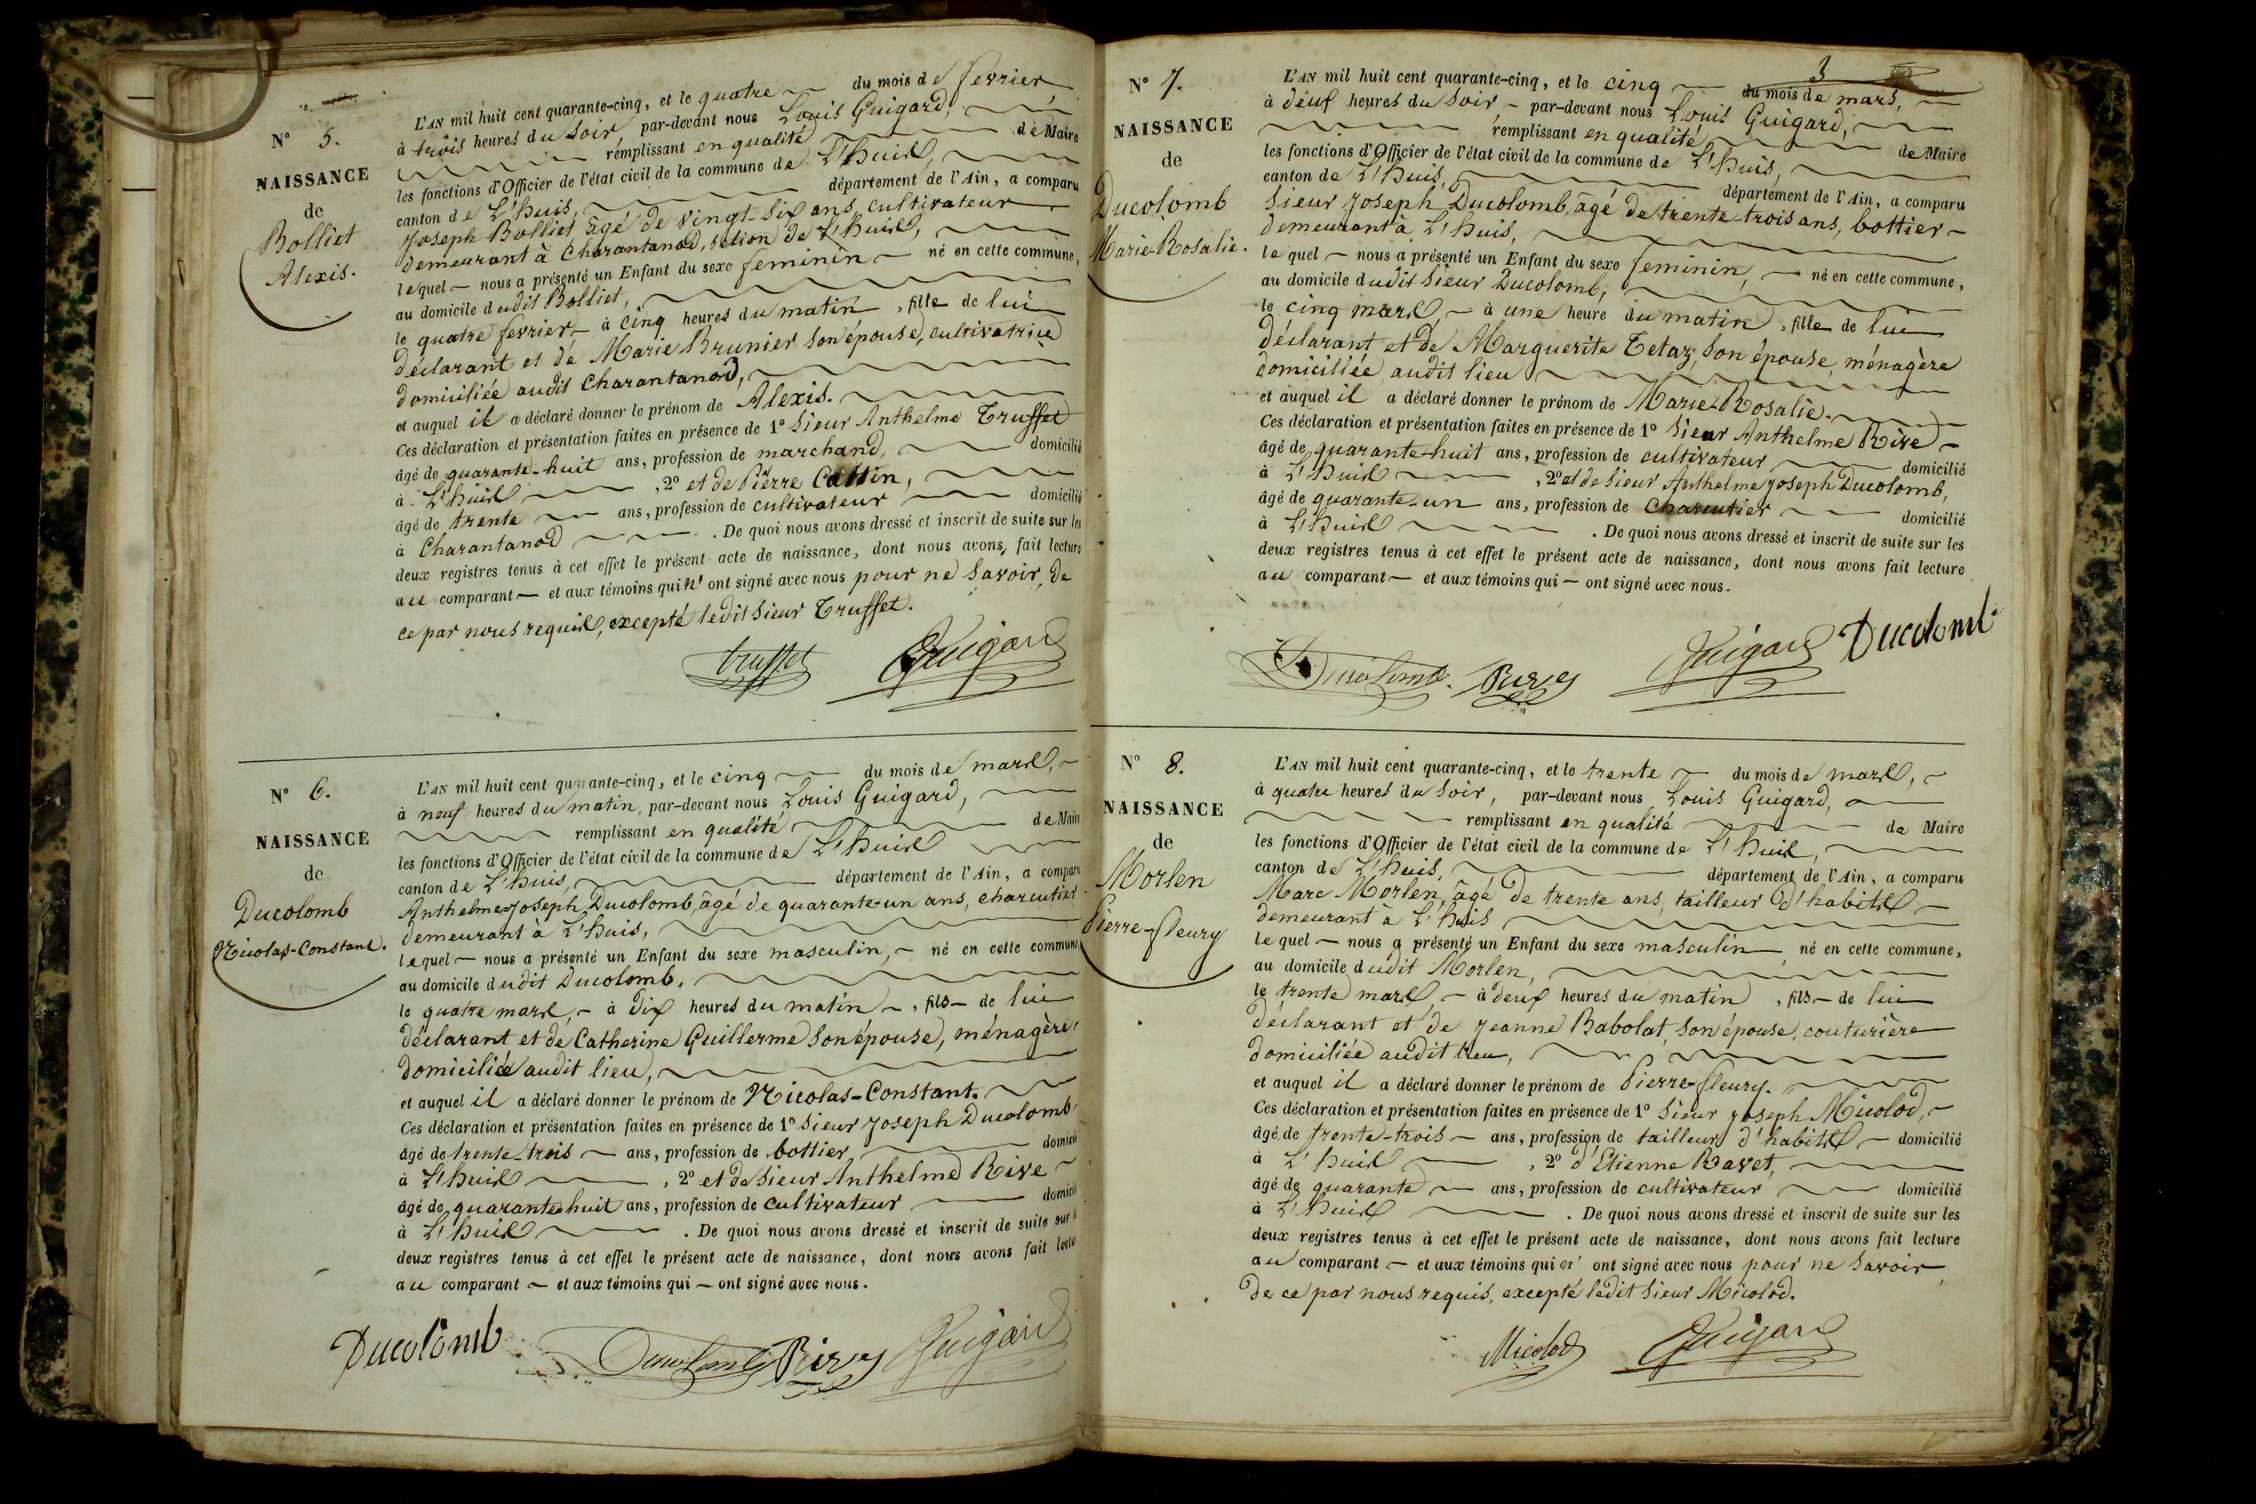 N° 5.
NAISSANCE
de
Bolliet
Alexis.
L'AN mil huit cent quarante-cinq, et le quatre du mois de fevrier,
à trois heures du soir par-devant nous Louis Guigard,
remplissant en qualité de Maire
les fonctions d'Officier de l'état civil de la commune de L'huis,
canton de L'huis, département de l'Ain, a comparu
Joseph Bolliet âgé de vingt-six ans, cultivateur
demeurant à Charantanod, section de L'huis,
lequel nous a présenté un Enfant du sexe feminin né en cette commune,
au domicile dudit Bolliet,
le quatre fevrier, à cinq heures du matin, fille de lui
déclarant et de Marie Brunier son épouse, cultivatrice
domiciliée audit Charantanod,
et auquel il a déclaré donner le prénom de Alexis.
Ces déclaration et présentation faites en présence de 1° Sieur Anthelme Truffet
âgé de quarante-huit ans, profession de marchand, domicilié
à L'huis, 2° et de Pierre Cattin,
âgé de trente ans, profession de cultivateur domicilié
à Charantanod. De quoi nous avons dressé et inscrit de suite sur les
deux registres tenus à cet effet le présent acte de naissance, dont nous avons, fait lecture
au comparant et aux témoins qui n'ont signé avec nous pour ne savoir, de
ce par nous requis, excepté ledit sieur Truffet.
truffet Guigard
N° 6.
NAISSANCE
de
Ducolomb
Nicolas-Constant.
L'AN mil huit cent quarante-cinq, et le cinq du mois de mars,
à neuf heures du matin, par-devant nous Louis Guigard,
remplissant en qualité de Maire
les fonctions d'Officier de l'état civil de la commune de L'huis
canton de L'huis, département de l'Ain, a comparu
Anthelme-Joseph Ducolomb, âgé de quarante-un ans, charcutier
demeurant à L'huis,
lequel nous a présenté un Enfant du sexe masculin, né en cette commune,
au domicile dudit Ducolomb,
le quatre mars, à dix heures du matin, fils de lui
déclarant et de Catherine Guillerme son épouse, ménagère
domiciliée audit lieu,
et auquel il a déclaré donner le prénom de Nicolas-Constant.
Ces déclaration et présentation faites en présence de 1° Sieur Joseph Ducolomb
âgé de trente-trois ans, profession de bottier, domicilié
à L'huis, 2° et de sieur Anthelme Rive
âgé de quarante-huit ans, profession de cultivateur domicilié
à L'huis. De quoi nous avons dressé et inscrit de suite sur les
deux registres tenus à cet effet le présent acte de naissance, dont nous avons fait lecture
au comparant et aux témoins qui ont signé avec nous.
Ducolomb Ducolomb Rive Guigard
3
N° 7.
NAISSANCE
de
Ducolomb
Marie-Rosalie.
L'AN mil huit cent quarante-cinq, et le cinq du mois de mars,
à deux heures du soir par-devant nous Louis Guigard,
remplissant en qualité de Maire
les fonctions d'Officier de l'état civil de la commune de L'huis,
canton de L'huis, département de l'Ain, a comparu
Sieur Joseph Ducolomb, âgé de trente-trois ans, bottier
demeurant à L'huis,
lequel nous a présenté un Enfant du sexe feminin, né en cette commune,
au domicile dudit sieur Ducolomb,
le cinq mars, à une heure du matin, fille de lui
déclarant et de Marguerite Tetaz, son épouse, ménagère
domiciliée audit lieu
et auquel il a déclaré donner le prénom de Marie-Rosalie.
Ces déclaration et présentation faites en présence de 1° Sieur Anthelme Rive
âgé de quarante-huit ans, profession de cultivateur domicilié
à L'huis, 2° et de sieur Anthelme Joseph Ducolomb,
âgé de quarante-un ans, profession de Charcutier domicilié
à L'huis. De quoi nous avons dressé et inscrit de suite sur les
deux registres tenus à cet effet le présent acte de naissance, dont nous avons fait lecture
au comparant et aux témoins qui ont signé avec nous.
Ducolomb Rive Guigard Ducolomb
N° 8.
NAISSANCE
de
Morlen
Pierre-fleury
L'AN mil huit cent quarante-cinq, et le trente du mois de mars,
à quatre heures du soir, par-devant nous Louis Guigard,
remplissant en qualité de Maire
les fonctions d'Officier de l'état civil de la commune de L'huis,
canton de L'huis, département de l'Ain, a comparu
Marc Morlen, âgé de trente ans, tailleur d'habits
demeurant à L'huis
lequel nous a présenté un Enfant du sexe masculin né en cette commune,
au domicile dudit Morlen,
le trente mars, à deux heures du matin, fils de lui
déclarant et de Jeanne Babolat, son épouse, couturière
domiciliée audit lieu,
et auquel il a déclaré donner le prénom de Pierre-fleury.
Ces déclaration et présentation faites en présence de 1° Sieur Joseph Micolod,
âgé de trente-trois ans, profession de tailleur d'habits domicilié
à L'huis, 2° d'Etienne Ravet,
âgé de quarante ans, profession de cultivateur domicilié
à L'huis. De quoi nous avons dressé et inscrit de suite sur les
deux registres tenus à cet effet le présent acte de naissance, dont nous avons fait lecture
au comparant et aux témoins qui n'ont signé avec nous pour ne savoir
de ce par nous requis, excepté ledit sieur Micolod.
Micolod Guigard